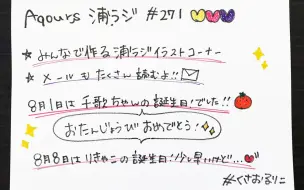 Aqours 浦ラジ #271
★ みんなで作る浦ラジイラストコーナー
★ メールもたくさん読むよ!!
8月1日は千歌ちゃんの誕生日でした!!
おたんじょうびおめでとう!
8月8日はりきゃこの誕生日!少し早いけど…
#くさおるりこ